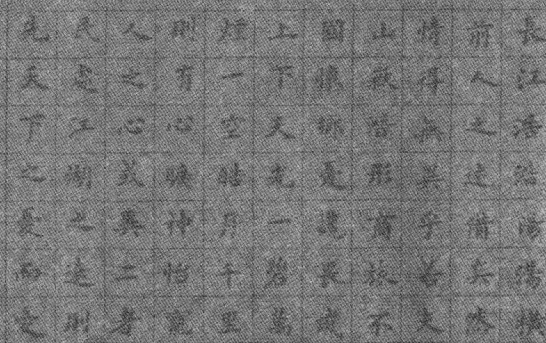 長江浩浩湯湯橫
前人之述備矣然
情得無異乎若夫
山嶽潛形商旅不
國懷鄉憂讒畏譏
上下天光一碧萬
煙一空皓月千里
則有心曠神怡寵
人之心或異二者
民處江湖之遠則
先天下之憂而